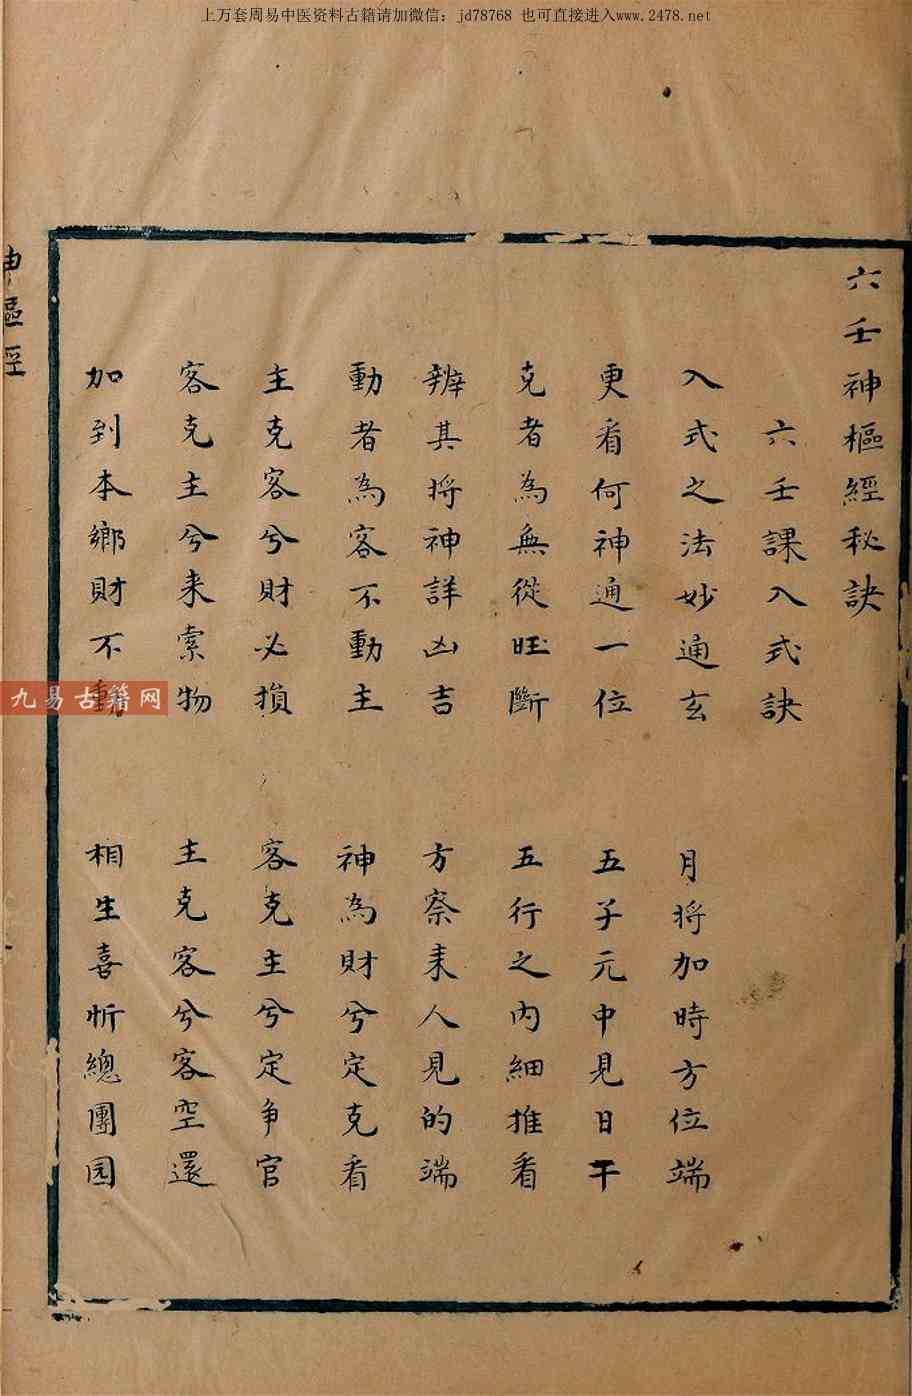 上万套周易中医资料古籍请加微信：jd78768 也可直接进入www.2478.net
六壬神樞經秘訣
六壬課入式訣
入式之法妙通玄 月将加時方位端
更看何神通一位 五子元中見日干
克者為無從旺斷 五行之内細推看
辨其将神詳凶吉 方察来人見的端
動者為客不動主 神為財兮定克看
主克客兮財必損 客克主兮定争官
客克主兮来索物 主克客兮客空還
加到本鄉財不動 相生喜忻總團园
神樞經
九易古籍网